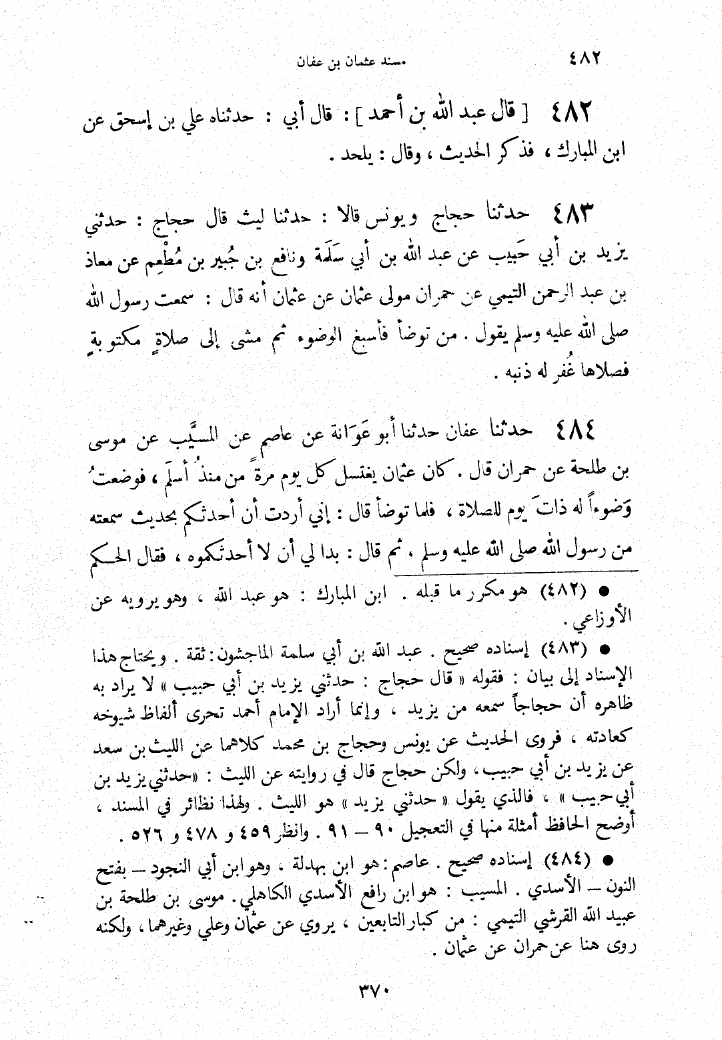 ٤٨٢ مسند عثمان بن عفان
٤٨٢ [ قال عبد الله بن أحمد ] : قال أبي : حدثناه علي بن إسحق عن
ابن المبارك ، فذكر الحديث ، وقال : يلحد .
٤٨٣ حدثنا حجاج ويونس قالا : حدثنا ليث قال حجاج : حدثني
يزيد بن أبي حَبيب عن عبد الله بن أبي سَلَمة ونافع بن جُبير بن مُطْعِم عن معاذ
بن عبد الرحمن التيمي عن حمران مولى عثمان عن عثمان أنه قال : سمعت رسول الله
صلى الله عليه وسلم يقول . من توضأ فأسبغ الوضوء ثم مشى إلى صلاةٍ مكتوبةٍ
فصلاها غُفر له ذنبه .
٤٨٤ حدثنا عفان حدثنا أبو عَوَانة عن عاصم عن المسيَّب عن موسى
بن طلحة عن حمران قال . كان عثمان يغتسل كل يوم مرةً من منذُ أسلَم ، فوضعتُ
وَضوءاً له ذاتَ يوم للصلاة ، فلما توضأ قال : إني أردت أن أحدثكم بحديث سمعته
من رسول الله صلى الله عليه وسلم . ثم قال : بدا لي أن لا أحدثكموه ، فقال الحكم
• (٤٨٢) هو مكرر ما قبله . ابن المبارك : هو عبد الله ، وهو يرويه عن
الأوزاعي .
• (٤٨٣) إسناده صحيح . عبد الله بن أبي سلمة الماجشون : ثقة . ويحتاج هذا
الإسناد إلى بيان : فقوله « قال حجاج : حدثني يزيد بن أبي حبيب » لا يراد به
ظاهره أن حجاجاً سمعه من يزيد ، وإنما أراد الإمام أحمد تحرى ألفاظ شيوخه
كعادته ، فروى الحديث عن يونس وحجاج بن محمد كلاهما عن الليث بن سعد
عن يزيد بن أبي حبيب ، ولكن حجاج قال في روايته عن الليث : « حدثني يزيد بن
أبي حبيب » ، فالذي يقول « حدثني يزيد » هو الليث . ولهذا نظائر في المسند ،
أوضح الحافظ أمثلة منها في التعجيل ٩٠ – ٩١ . وانظر ٤٥٩ و ٤٧٨ و ٥٢٦ .
• (٤٨٤) إسناده صحيح . عاصم : هو ابن بهدلة ، وهو ابن أبي النجود – بفتح
النون – الأسدي . المسيب : هو ابن رافع الأسدي الكاهلي . موسى بن طلحة بن
عبيد الله القرشي التيمي : من كبار التابعين ، يروي عن عثمان وعلي وغيرهما ، ولكنه
روى هنا عن حمران عن عثمان .
٣٧٠